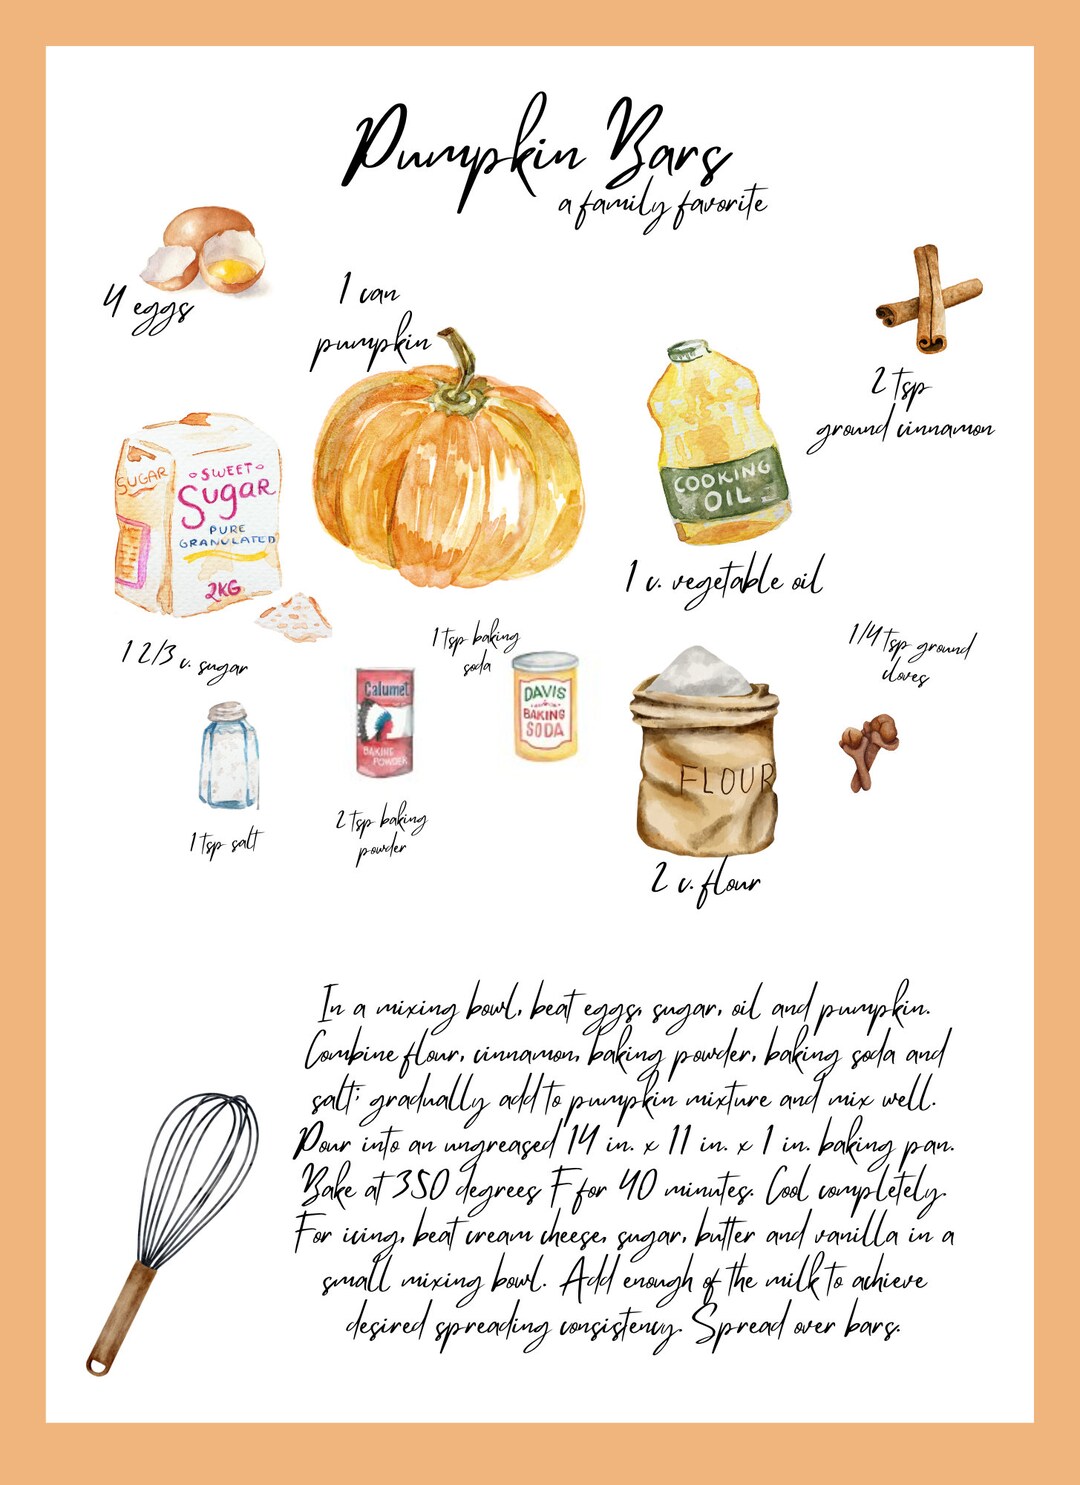 Pumpkin Bars
a family favorite
4 eggs
1 can
pumpkin
2 tsp
ground cinnamon
SUGAR
SWEET
Sugar
PURE
GRANULATED
2KG
COOKING
OIL
1 c. vegetable oil
1 2/3 c. sugar
1 tsp baking
soda
1/4 tsp ground
cloves
Calumet
BAKING
POWDER
DAVIS
BAKING
SODA
FLOUR
1 tsp salt
2 tsp baking
powder
2 c. flour
In a mixing bowl, beat eggs, sugar, oil and pumpkin.
Combine flour, cinnamon, baking powder, baking soda and
salt; gradually add to pumpkin mixture and mix well.
Pour into an ungreased 14 in. x 11 in. x 1 in. baking pan.
Bake at 350 degrees F for 40 minutes. Cool completely.
For icing, beat cream cheese, sugar, butter and vanilla in a
small mixing bowl. Add enough of the milk to achieve
desired spreading consistency. Spread over bars.